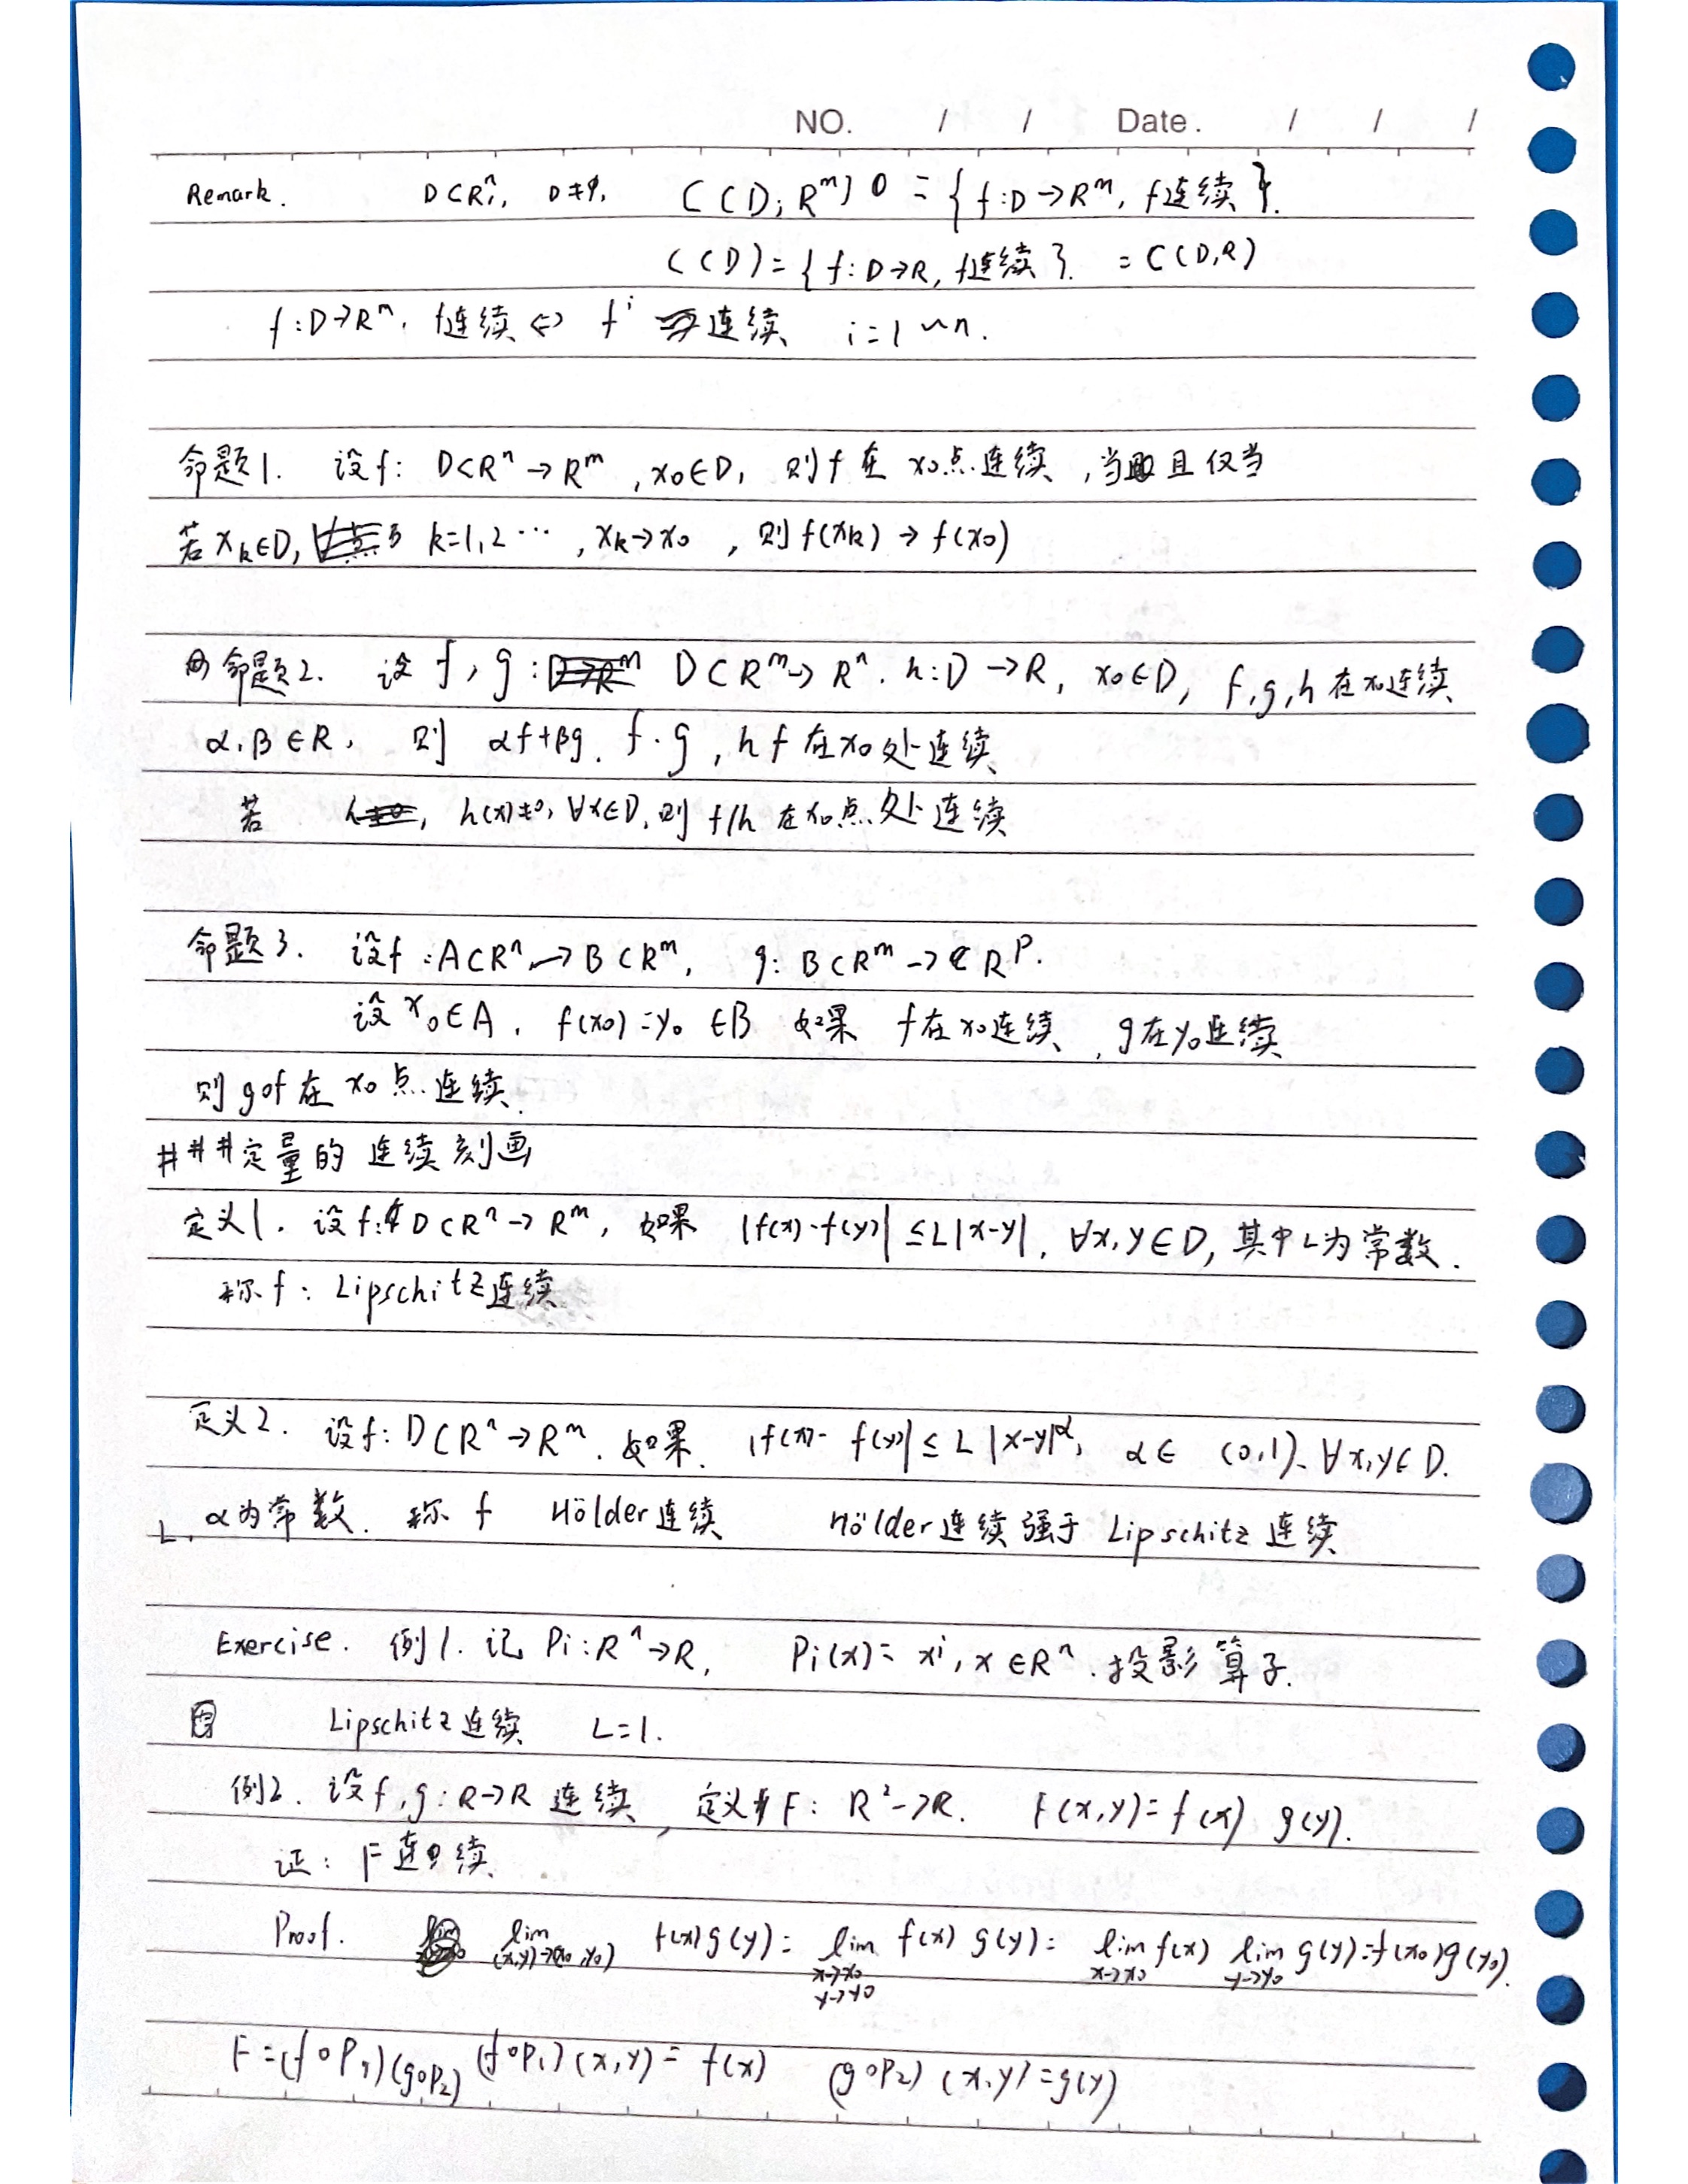 NO. / / Date. / / /
Remark. D⊂Rⁿ, D≠φ, C(D;Rᵐ) = {f:D→Rᵐ, f连续}.
C(D)={f:D→R, f连续}. =C(D,R)
f:D→Rᵐ, f连续⇔ fⁱ 连续 i=1~n.
命题1. 设f: D⊂Rⁿ→Rᵐ, x₀∈D, 则f在x₀点连续,当且仅当
若x_k∈D, k=1,2…, x_k→x₀, 则f(x_k)→f(x₀)
命题2. 设 f, g: D⊂Rᵐ→Rⁿ. h:D→R, x₀∈D, f,g,h在x₀连续
α,β∈R, 则 αf+βg. f·g, hf在x₀处连续
若 h(x)≠0, ∀x∈D, 则 f/h 在x₀点处连续
命题3. 设f:A⊂Rⁿ→B⊂Rᵐ, g: B⊂Rᵐ→Rᵖ.
设x₀∈A, f(x₀)=y₀∈B 如果 f在x₀连续, g在y₀连续
则g∘f在x₀点连续.
###定量的连续刻画
定义1. 设f:D⊂Rⁿ→Rᵐ, 如果 |f(x)-f(y)|≤L|x-y|, ∀x,y∈D, 其中L为常数.
称f: Lipschitz连续
定义2. 设f: D⊂Rⁿ→Rᵐ. 如果. |f(x)-f(y)|≤L|x-y|^α, α∈(0,1), ∀x,y∈D.
L, α为常数. 称f Hölder连续 Hölder连续强于Lipschitz连续
Exercise. 例1. 记Pi:Rⁿ→R, Pi(x)=xⁱ, x∈Rⁿ.投影算子.
Lipschitz连续 L=1.
例2. 设f,g:R→R连续, 定义F: R²→R. F(x,y)=f(x) g(y).
证: F连续
Proof. lim_{(x,y)→(x₀,y₀)} f(x)g(y)= lim_{x→x₀ y→y₀} f(x)g(y)= lim_{x→x₀} f(x) lim_{y→y₀} g(y)=f(x₀)g(y₀).
F=(f∘P₁)(g∘P₂) (f∘P₁)(x,y)=f(x) (g∘P₂)(x,y)=g(y)